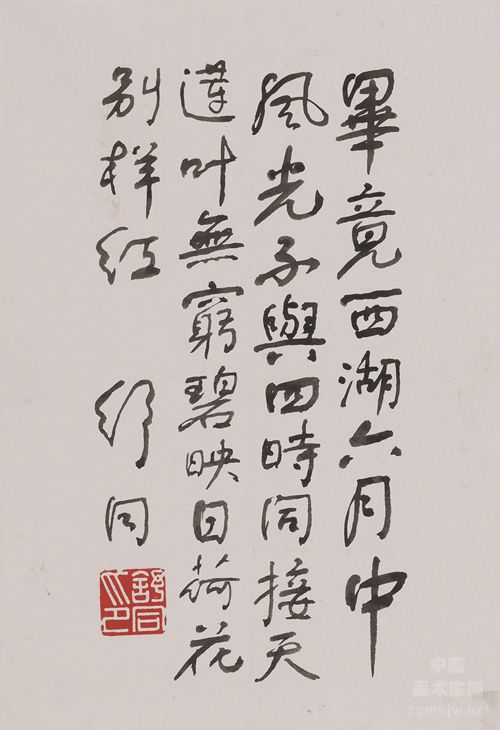 畢竟西湖六月中
風光不與四時同接天
蓮叶無窮碧映日荷花
别样红
舒同
舒同之印
中国
美术家网
zgmsjw.net